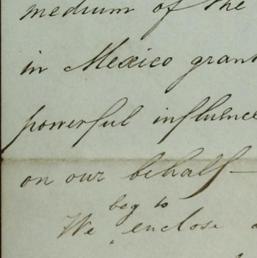 medium of the
in Mexico grant
powerful influence
on our behalf—
beg to
We ‸ enclose a